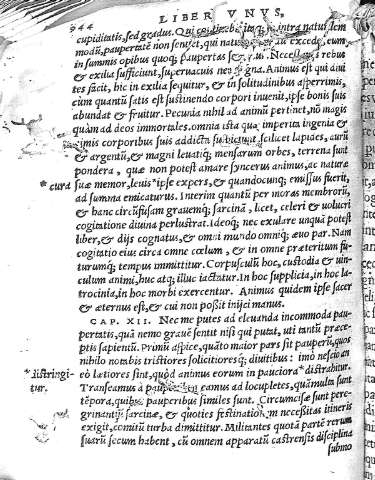 944 LIBER VNVS.
cupiditatis, sed gradus. Qui continebit itaq; se intra naturalem
modũ, paupertatẽ non sentiet, qui naturalem modũ excedet, eum
in summis opibus quoq; paupertas sequetur. Necessarijs rebus
& exilia sufficiunt, superuacuis nec regna. Animus est qui diui
tes facit, hic in exilia sequitur, & in solitudinibus asperrimis,
cum quantũ satis est sustinendo corpori inuenit, ipse bonis suis
abundat & fruitur. Pecunia nihil ad animũ pertinet, nõ magis
quàm ad deos immortales. omnia ista quæ imperita ingenia &
nimis corporibus suis addicta suspiciunt, scilicet lapides, aurũ
& argentũ, & magni leuatiq; mensarum orbes, terrena sunt
pondera, quæ non potest amare syncerus animus, ac naturæ
* suæ memor, leuis * ipse expers, & quandocunq; emissus fuerit,
cura
ad summa emicaturus. Interim quantũ per moras membrorũ,
& hanc circũfusam grauemq; sarcinã, licet, celeri & uolucri
cogitatione diuina perlustrat. Ideoq; nec exulare unquã potest
liber, & dijs cognatus, & omni mundo omniq; æuo par. Nam
cogitatio eius circa omne cœlum, & in omne præteritum fu-
turumq; tempus immittitur. Corpusculũ hoc, custodia & uin-
culum animi, huc atq; illuc iactatur. In hoc supplicia, in hoc la-
trocinia, in hoc morbi exercentur. Animus quidem ipse sacer
& æternus est, & cui non possit inijci manus.
CAP. XII. Nec me putes ad eleuanda incommoda pau-
pertatis, quã nemo grauẽ sentit nisi qui putat, uti tantũ præce-
ptis sapientũ. Primũ aspice, quãto maior pars sit pauperũ, quos
nihilo notabis tristiores solicitioresq; diuitibus: imò nescio an
* distringi- eò lætiores sint, quòd animus eorum in pauciora * distrahitur.
tur. Transeamus à pauperibus, eamus ad locupletes, quã multa sunt
tẽpora, quibus pauperibus similes sunt. Circumcisæ sunt pere-
grinantiũ sarcinæ, & quoties festinationem necessitas itineris
exigit, comitũ turba dimittitur. Militantes quotã partẽ rerum
suarũ secum habent, cũ omnem apparatũ castrensis disciplina
submo